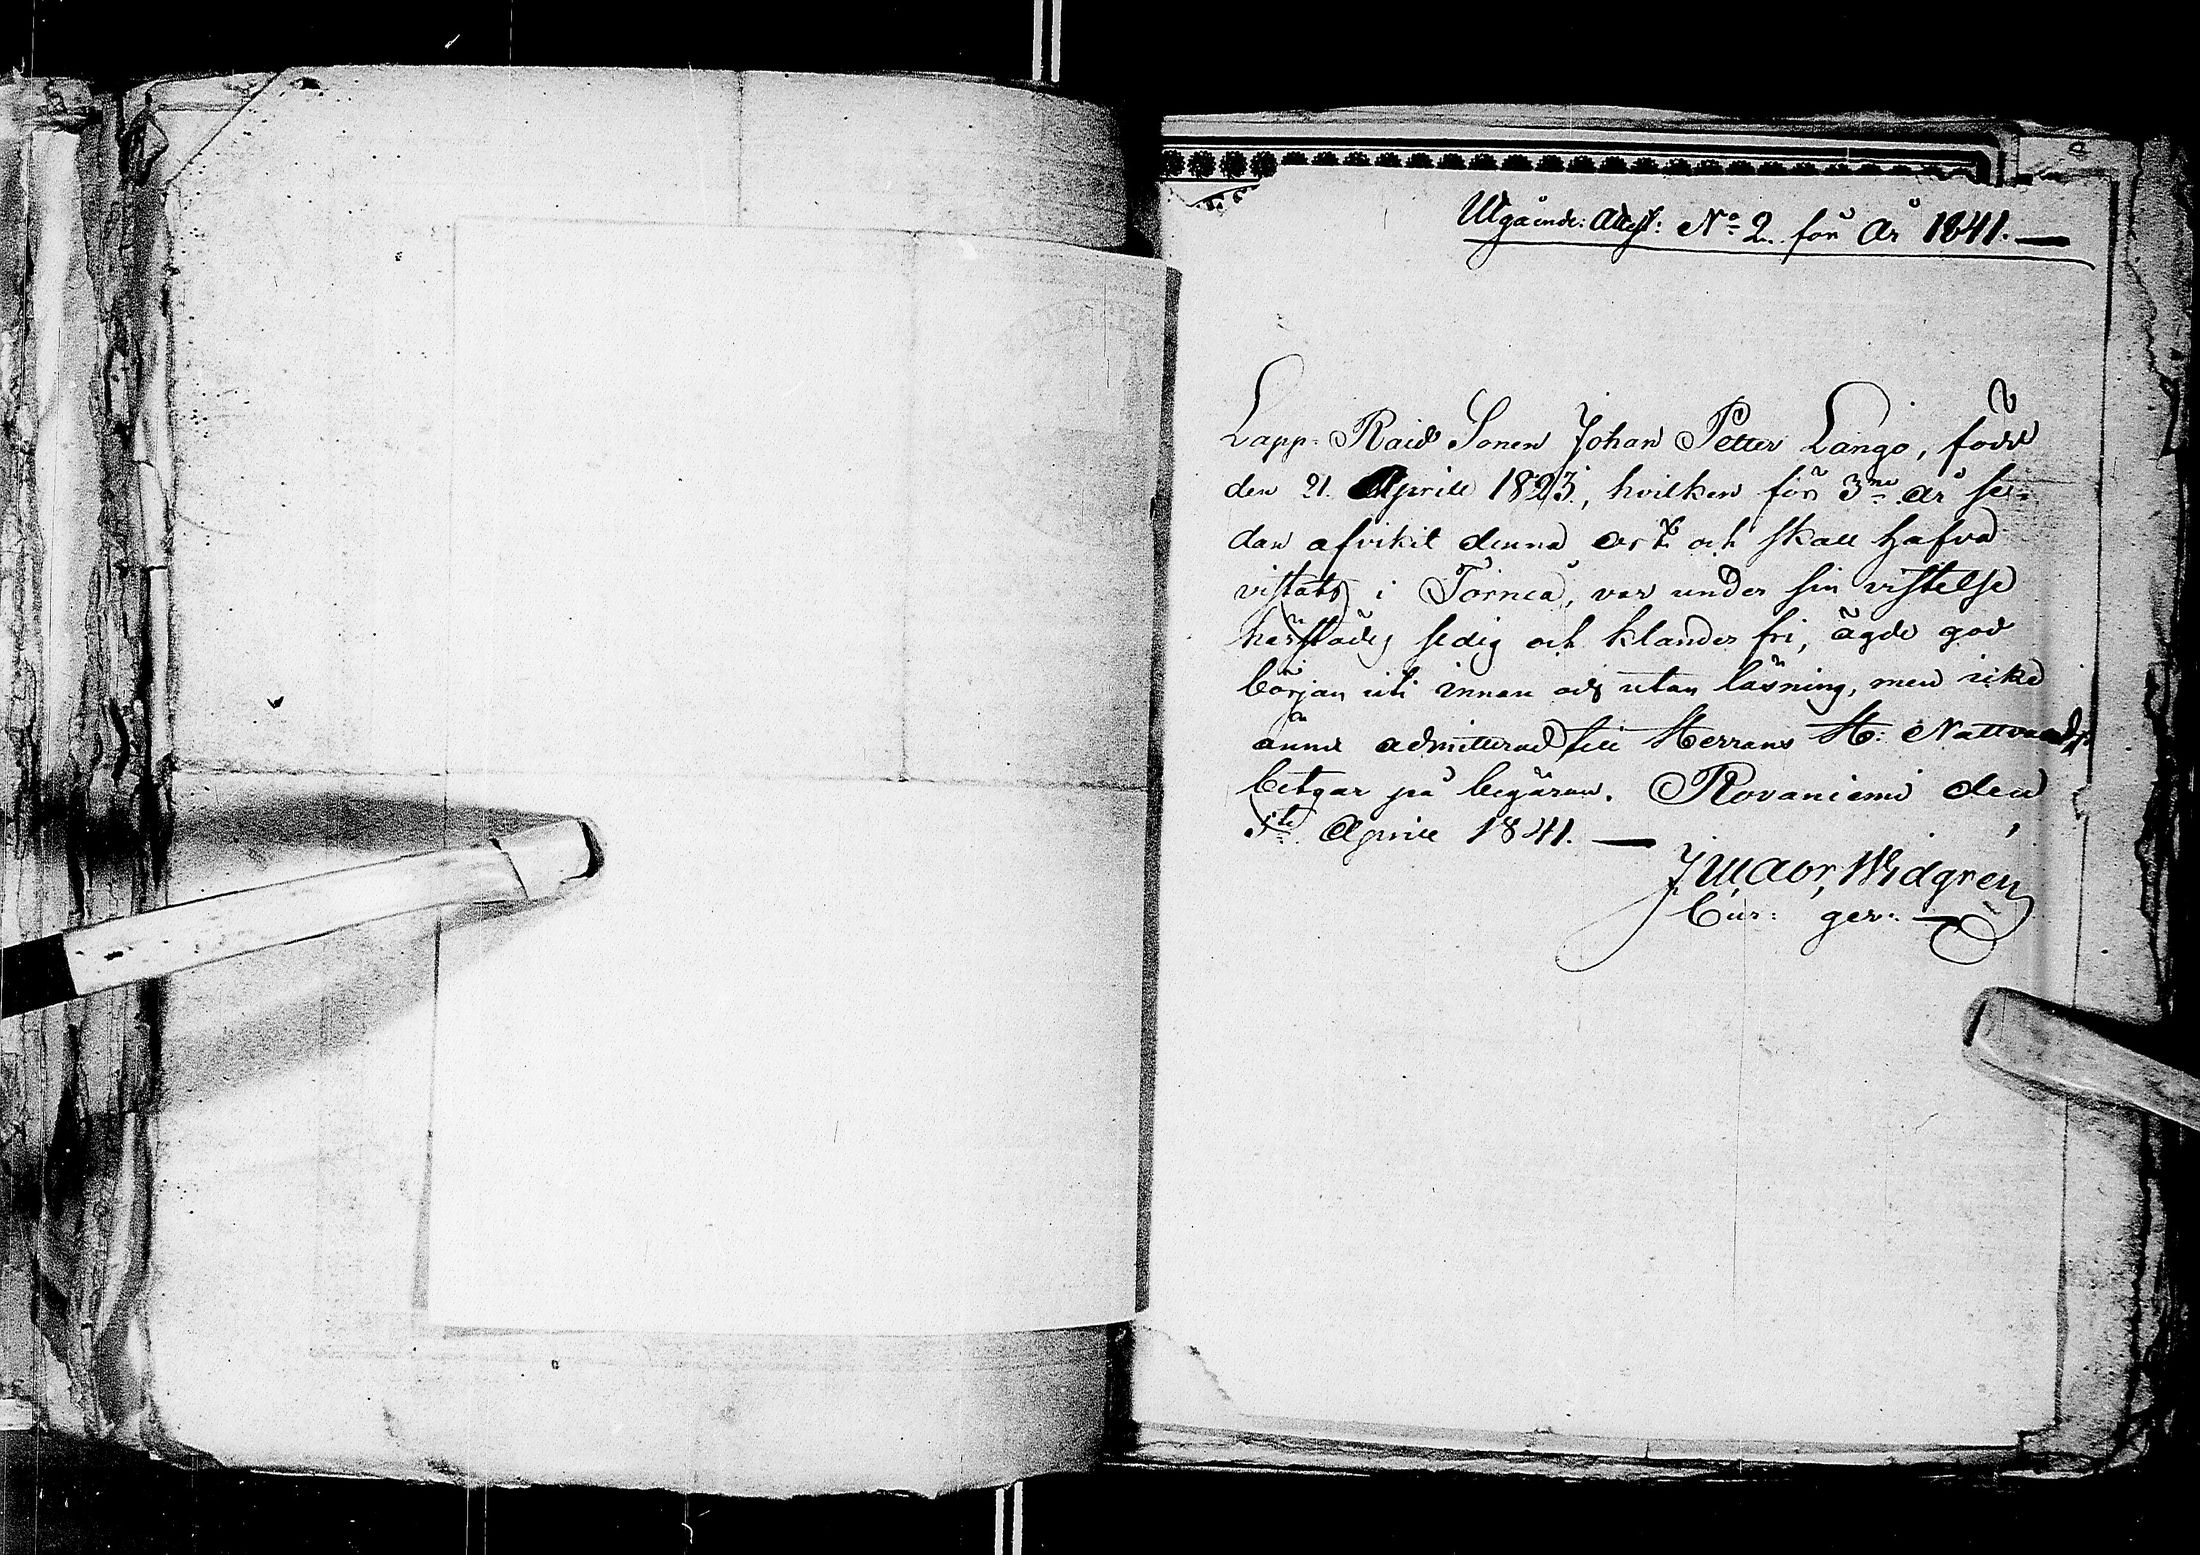 Utgående: Attest: No 2. för År 1841. —
Lapp Raid Sonen Johan Petter Lango, född
den 21. Aprill 1823, hvilken för 3ne år se-
dan afvikit denna ort och skall hafva
vistats i Torneå, var under sin vistelse
härstädes sedig och klander fri, ägde god
början uti innan och utan läsning, men icke
ännu admitterad till Herrans H: Nattvard,
betygar på begäran. Rovaniemi den
1ste Aprill 1841. —
Widgren
Cur: ger: